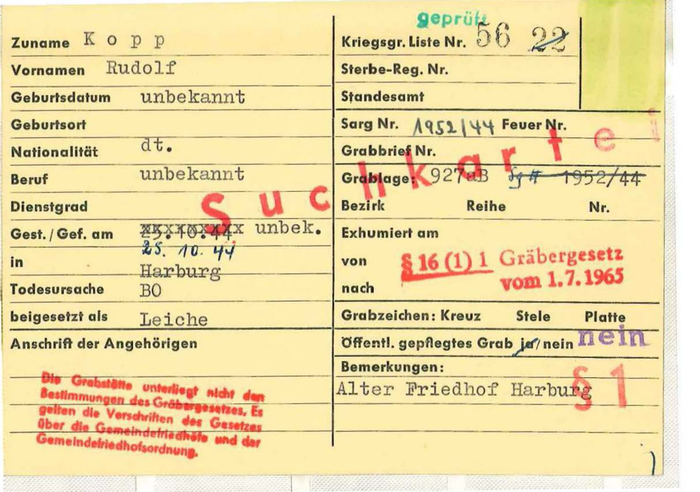 geprüft
Zuname Kopp
Vornamen Rudolf
Geburtsdatum unbekannt
Geburtsort
Nationalität dt.
Beruf unbekannt
Dienstgrad
Gest./Gef. am 25.10.44 unbek.
25. 10. 44
in Harburg
Todesursache BO
beigesetzt als Leiche
Anschrift der Angehörigen
Die Grabstätte unterliegt nicht den
Bestimmungen des Gräbergesetzes. Es
gelten die Vorschriften des Gesetzes
über die Gemeindefriedhöfe und der
Gemeindefriedhofsordnung.
Suchkartei
Kriegsgr. Liste Nr. 56 22
Sterbe-Reg. Nr.
Standesamt
Sarg Nr. 1952/44 Feuer Nr.
Grabbrief Nr.
Grablage: 927aB 1952/44
Bezirk Reihe Nr.
Exhumiert am
von
nach
§ 16 (1) 1 Gräbergesetz
vom 1.7.1965
Grabzeichen: Kreuz Stele Platte
Öffentl. gepflegtes Grab ja/nein nein
Bemerkungen:
Alter Friedhof Harburg
§ 1